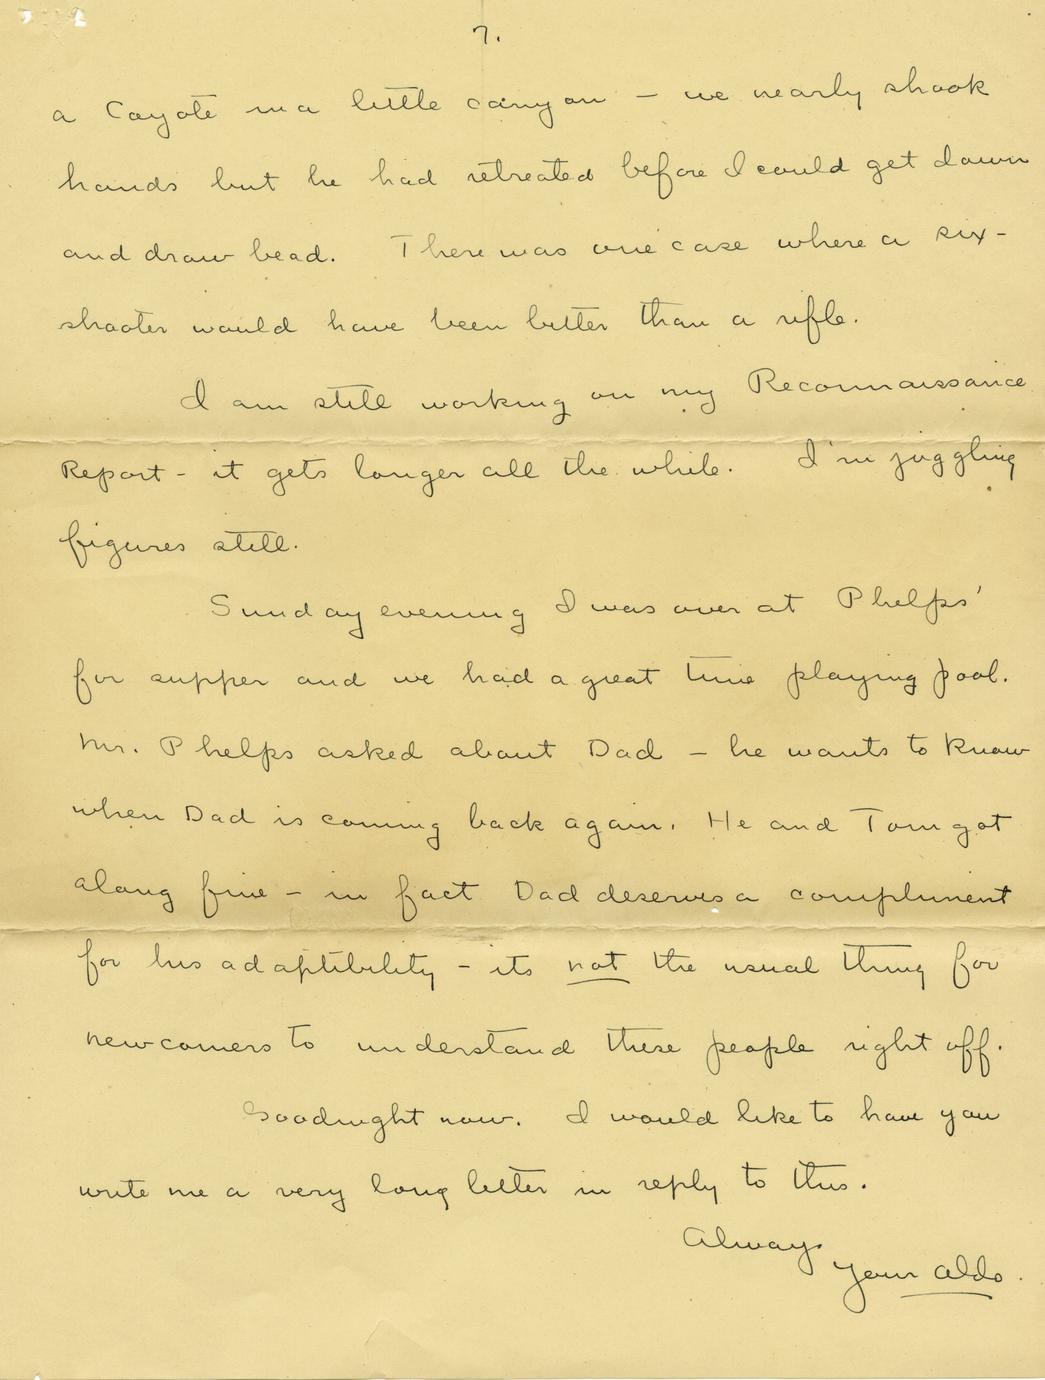 7.
a Coyote in a little canyon – we nearly shook
hands but he had retreated before I could get down
and draw bead. There was one case where a six-
shooter would have been better than a rifle.
I am still working on my Reconnaissance
Report – it gets longer all the while. I'm juggling
figures still.
Sunday evening I was over at Phelps'
for supper and we had a great time playing pool.
Mr. Phelps asked about Dad – he wants to know
when Dad is coming back again. He and Tom got
along fine – in fact Dad deserves a compliment
for his adaptibility – its not the usual thing for
newcomers to understand these people right off.
Goodnight now. I would like to have you
write me a very long letter in reply to this.
Always
Your Aldo.